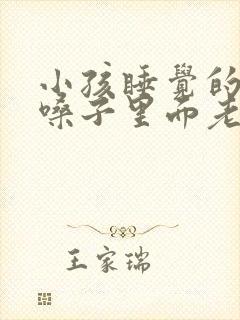 小孩睡覺的
嗓子里而老
王家瑞